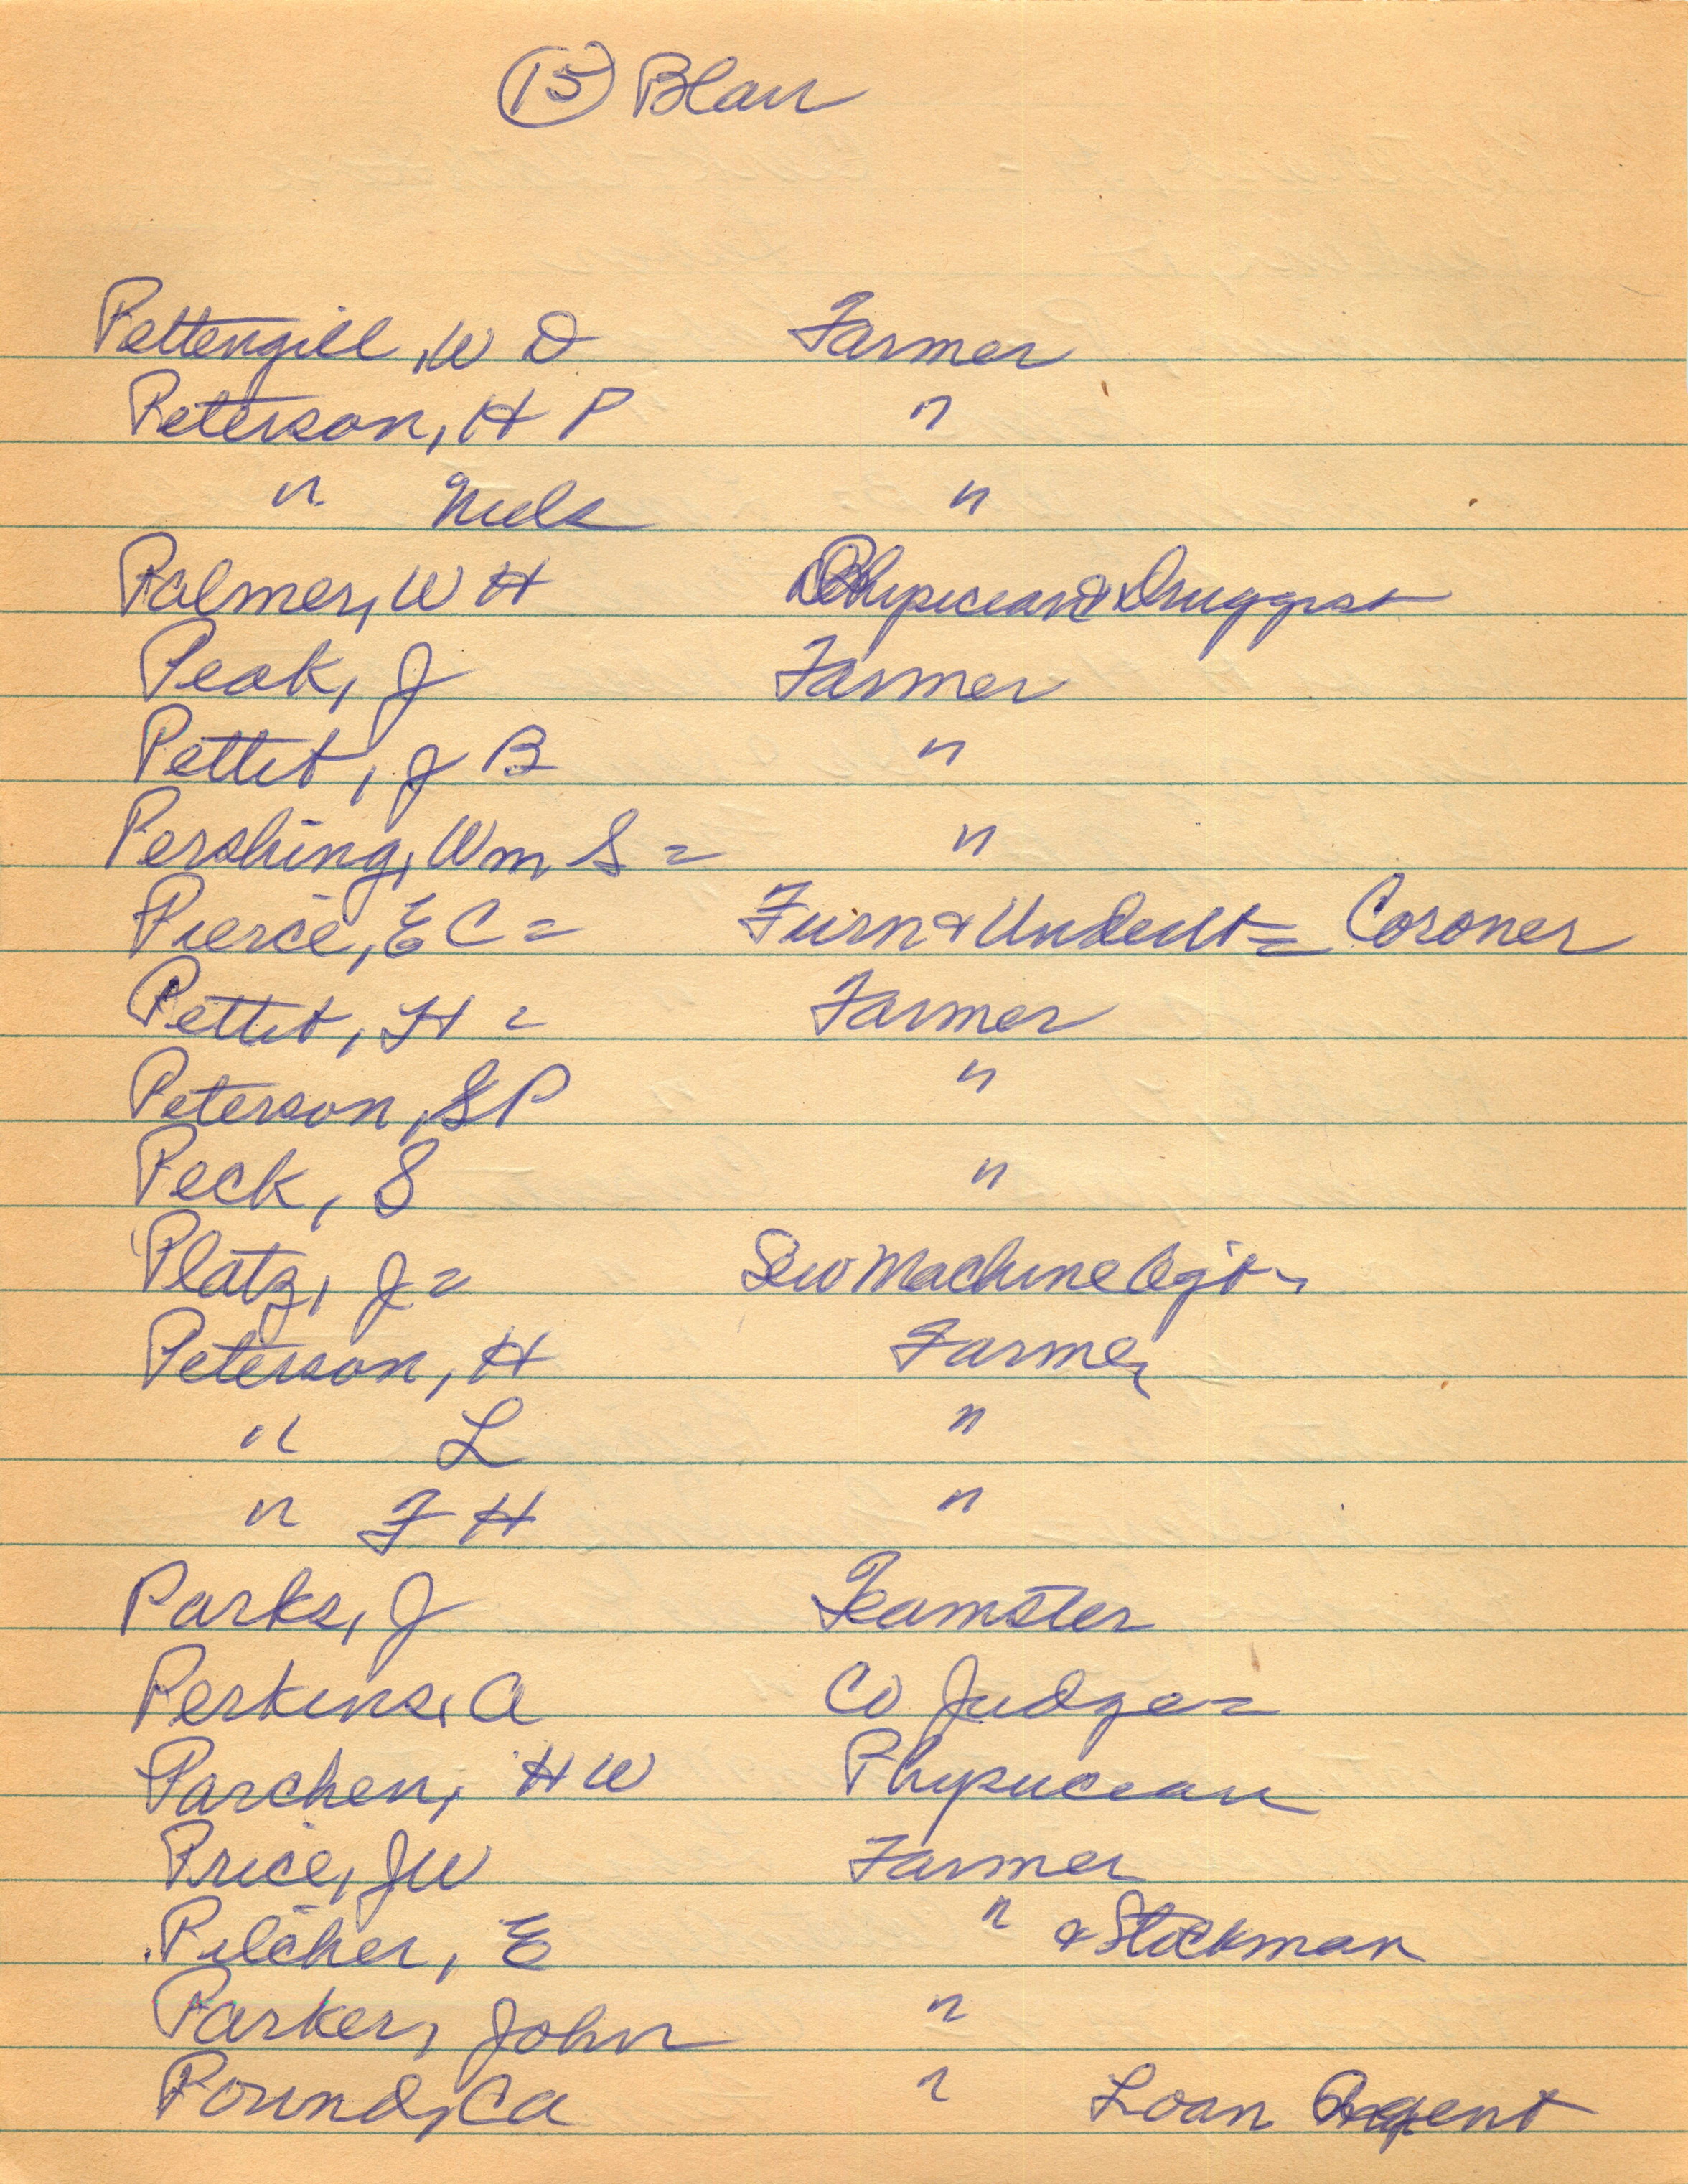 15 Blair
Pettengill, W D Farmer
Peterson, H P "
" Niels "
Palmer, W H Physician & Druggist
Peak, J Farmer
Pettit, J B "
Pershing, Wm S = "
Pierce, E C = Furn & Undert = Coroner
Pettit, H = Farmer
Peterson, S P "
Peck, S "
Platz, J = Sew Machine Agt -
Peterson, H Farmer
" L "
" F H "
Parks, J Teamster
Perkins, A Co Judge =
Parchen, H W Physician
Price, J W Farmer
Pilcher, E " & Stockman
Parker, John "
Pound, C A " Loan Agent